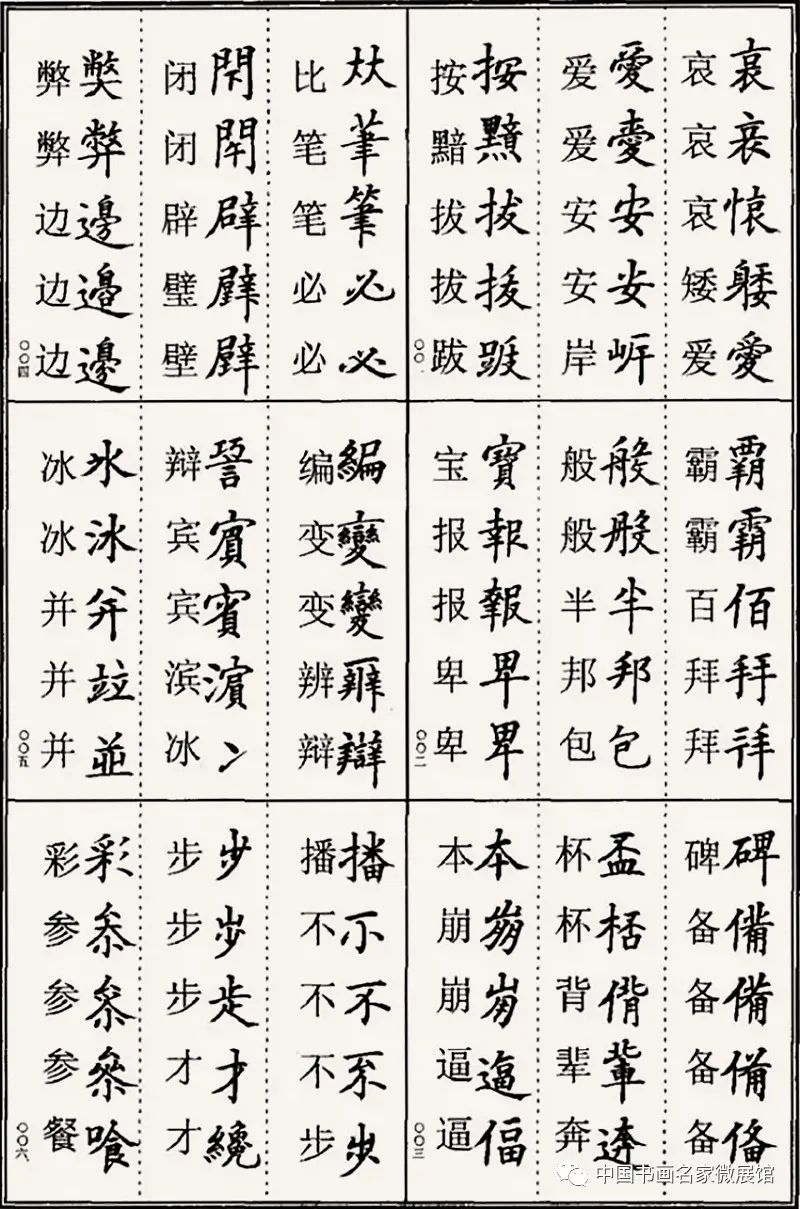 哀愛
哀哀哀矮爱
愛安
爱爱安安岸
按黯拔
按黯拔拔跋
〇〇一
霸霸佰拜
霸霸百拜拜
般般半邦包
般般半邦包
寶報報卑卑
宝报报卑卑
〇〇二
碑備備備
碑备备备备
盃桮偝輩
杯杯背辈奔
本逼偪
本崩崩逼逼
〇〇三
筆必必
比笔笔必必
閇閉辟
闭闭辟璧壁
弊邊邊邊
弊弊边边边
〇〇四
編變變辯
编变变辨辩
賓賓濵冫
辩宾宾滨冰
氷冰并竝並
冰冰并并并
〇〇五
播不不
播不不不步
步步才纔
步步步才才
彩参喰
彩参参参餐
〇〇六
中国书画名家微展馆